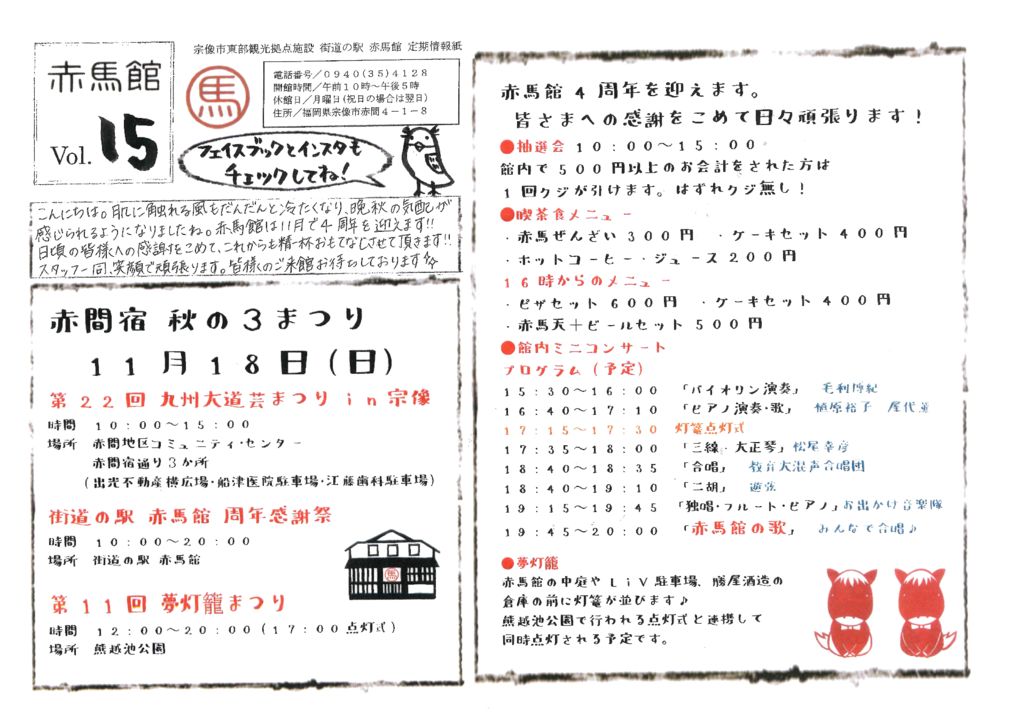 赤馬館
Vol. 15
宗像市東部観光拠点施設 街道の駅 赤馬館 定期情報紙
馬
電話番号/0940(35)4128
開館時間/午前10時~午後5時
休館日/月曜日(祝日の場合は翌日)
住所/福岡県宗像市赤間4-1-8
フェイスブックとインスタも
チェックしてね!
こんにちは。肌に触れる風もだんだんと冷たくなり、晩秋の気配が
感じられるようになりましたね。赤馬館は11月で4周年を迎えます!!
日頃の皆様への感謝をこめて、これからも精一杯おもてなしさせて頂きます!!
スタッフ一同、笑顔で頑張ります。皆様のご来館お待ちしております
赤間宿 秋の3まつり
11月18日(日)
第22回 九州大道芸まつり in宗像
時間 10:00~15:00
場所 赤間地区コミュニティ・センター
赤間宿通り3か所
(出光不動産横広場・船津医院駐車場・江藤歯科駐車場)
街道の駅 赤馬館 周年感謝祭
時間 10:00~20:00
場所 街道の駅 赤馬館
馬
第11回 夢灯籠まつり
時間 12:00~20:00(17:00点灯式)
場所 熊越池公園
赤馬館 4 周年を迎えます。
皆さまへの感謝をこめて日々頑張ります!
●抽選会 10:00~15:00
館内で500円以上のお会計をされた方は
1回クジが引けます。はずれクジ無し!
●喫茶食メニュー
・赤馬ぜんざい 300円 ・ケーキセット 400円
・ホットコーヒー・ジュース 200円
16時からのメニュー
・ピザセット 600円 ・ケーキセット 400円
・赤馬天+ビールセット 500円
●館内ミニコンサート
プログラム(予定)
15:30~16:00 「バイオリン演奏」 毛利博紀
16:40~17:10 「ピアノ演奏・歌」 植原裕子 屋代蓮
17:15~17:30 灯篭点灯式
17:35~18:00 「三線・大正琴」 松尾幸彦
18:40~18:35 「合唱」 教育大混声合唱団
18:40~19:10 「二胡」 遊弦
19:15~19:45 「独唱・フルート・ピアノ」お出かけ音楽隊
19:45~20:00 「赤馬館の歌」 みんなで合唱♪
●夢灯籠
赤馬館の中庭やLiV駐車場、勝屋酒造の
倉庫の前に灯篭が並びます♪
熊越池公園で行われる点灯式と連携して
同時点灯される予定です。